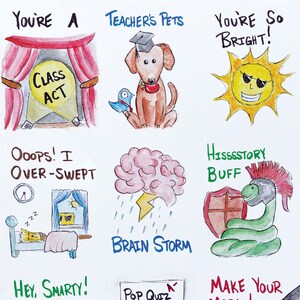 YOU'RE A
CLASS
ACT
TEACHER'S PETS
YOU'RE SO
BRIGHT!
OOOPS! I
OVER-SWEPT
ZZZ
BRAIN STORM
HISSSSTORY
BUFF
HEY, SMARTY!
POP QUIZ
A
MAKE YOUR